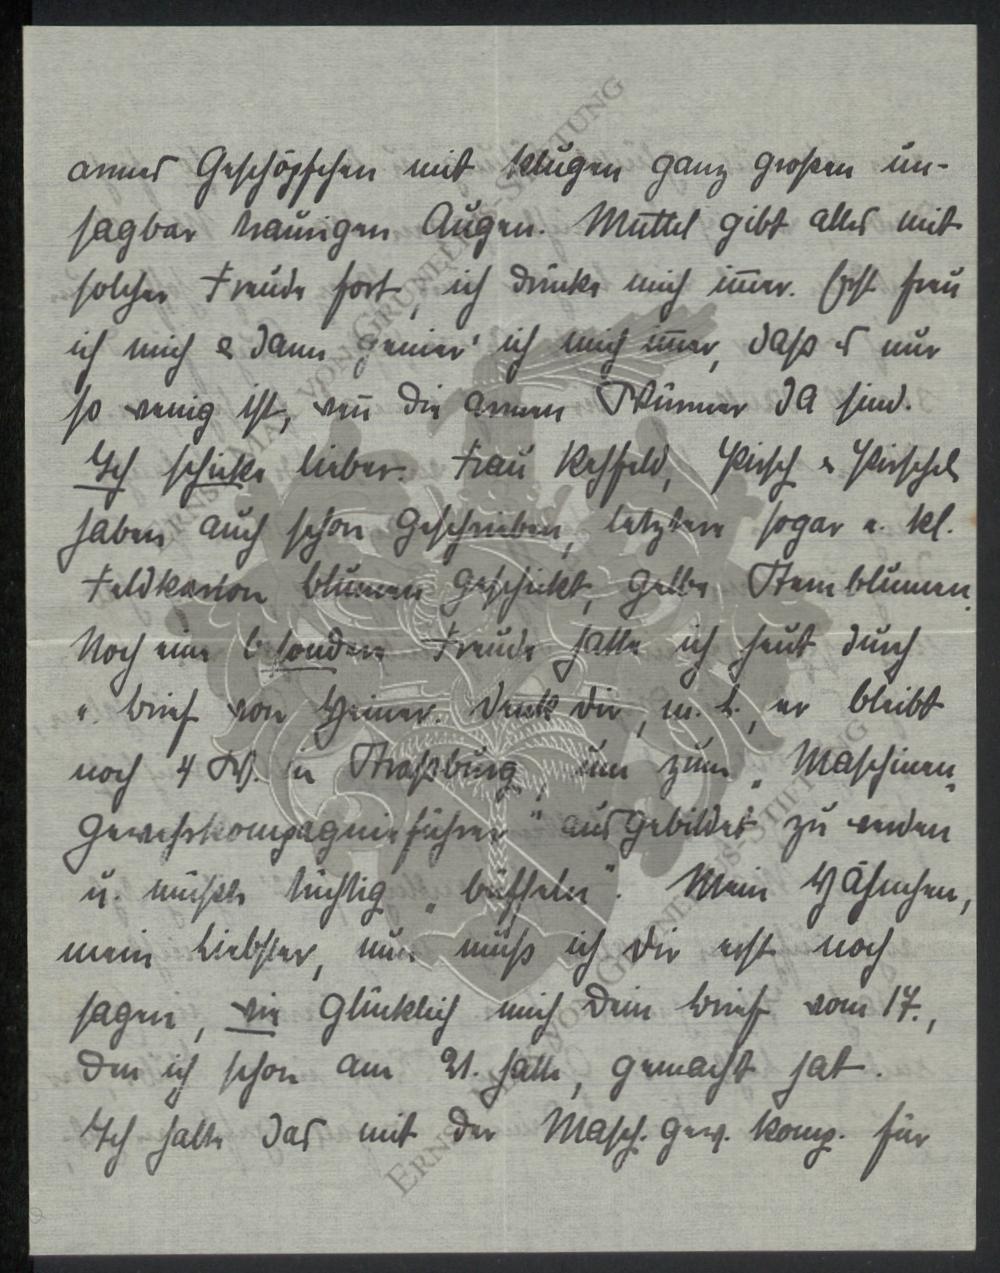 armes Geschöpfchen mit klugen ganz großen un-
sagbar traurigen Augen. Muttel gibt alles mit
solcher Freude fort, ich drücke mich im̅er. Erst freu
ich mich & dann genier' ich mich im̅er, daß es nur
so wenig ist, wen̅ die armen Würmer da sind.
Ich schicke lieber. Frau Rehfeld, Pirsch & Pirschel
haben auch schon geschrieben, letztere sogar e. kl.
Feldkarton Blumen geschickt, gelbe Sternblumen.
Noch eine besondere Freude hatte ich heut durch
e. Brief von Heiner. Denk dir, m. L., er bleibt
noch 4 W. in Straßburg, um zum „Maschinen-
gewehrkompagnieführer" ausgebildet zu werden
u. müßte tüchtig „büffeln". Mein Hähnchen,
mein Liebster, nun muß ich Dir erst noch
sagen, wie glücklich mich Dein Brief vom 17.,
den ich schon am 21. hatte, gemacht hat.
Ich halte das mit der Masch. Gew. Komp. für
ERNST-MAX VON GRUNELIUS-STIFTUNG
ERNST-MAX VON GRUNELIUS-STIFTUNG